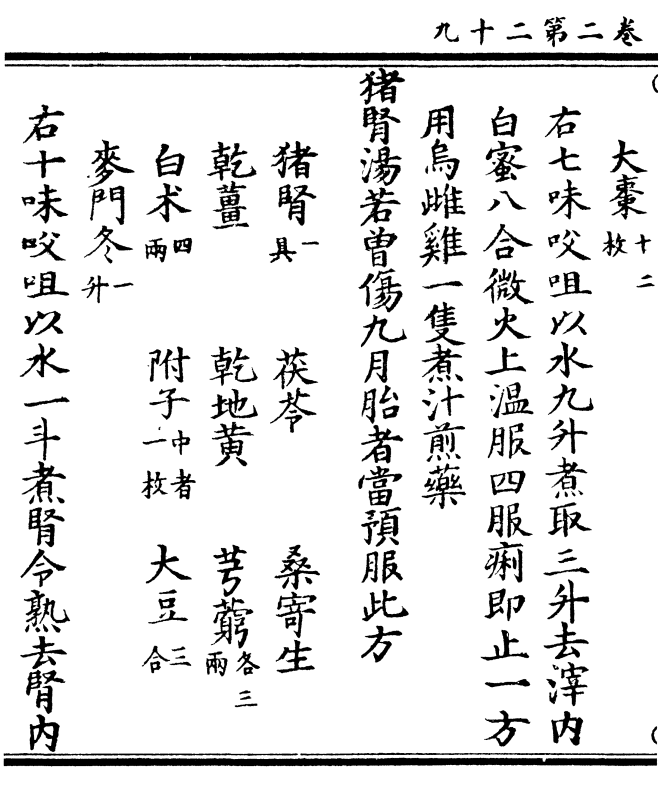 卷二第二十九
大棗十二枚
右七味㕮咀以水九升煮取三升去滓内
白蜜八合微火上溫服四服痢即止一方
用烏雌雞一隻煮汁煎藥
猪腎湯若曾傷九月胎者當預服此方
猪腎一具 茯苓 桑寄生
乾薑 乾地黃 芎藭各三兩
白术四兩 附子中者一枚 大豆三合
麥門冬一升
右十味㕮咀以水一斗煮腎令熟去腎内